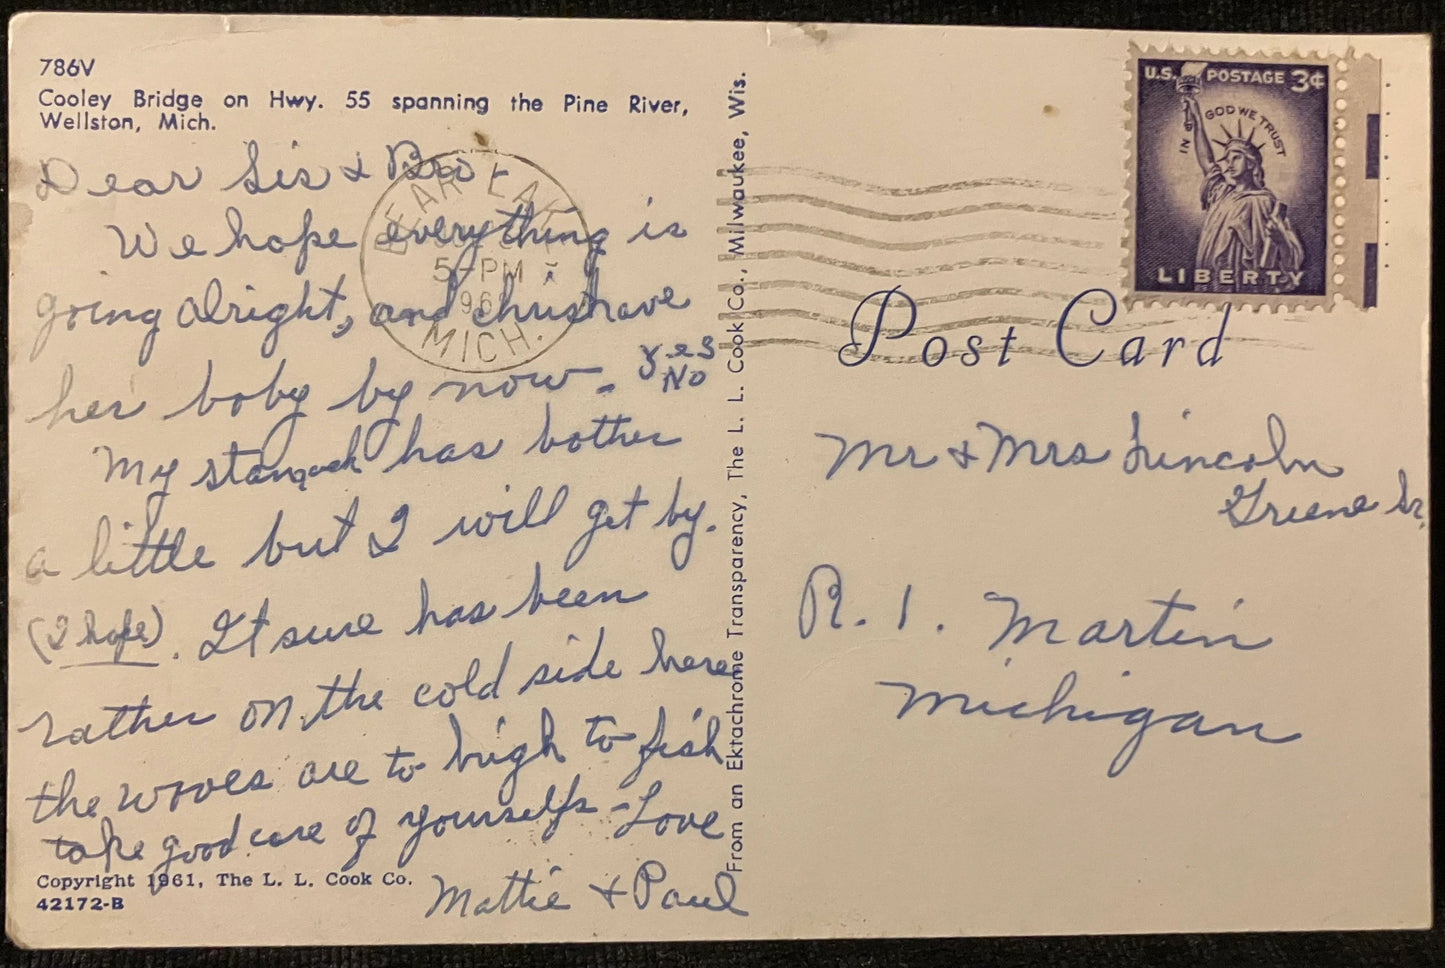 786V
Cooley Bridge on Hwy. 55 spanning the Pine River,
Wellston, Mich.
Dear Sis & Bro-
We hope everything is
going alright, and have
her baby by now. Yes
No
My stomach has bother
a little but I will get by.
(I hope). It sure has been
rather on the cold side here
the waves are to high to fish
take good care of yourselfs - Love
Mattie & Paul
Copyright 1961, The L. L. Cook Co.
42172-B
BEAR LAKE
5-PM
MICH.
From an Ektachrome Transparency, The L. L. Cook Co., Milwaukee, Wis.
U.S. POSTAGE 3¢
IN GOD WE TRUST
LIBERTY
Post Card
Mr & Mrs Lincoln
Greene Sr.
R. 1. Martin
Michigan